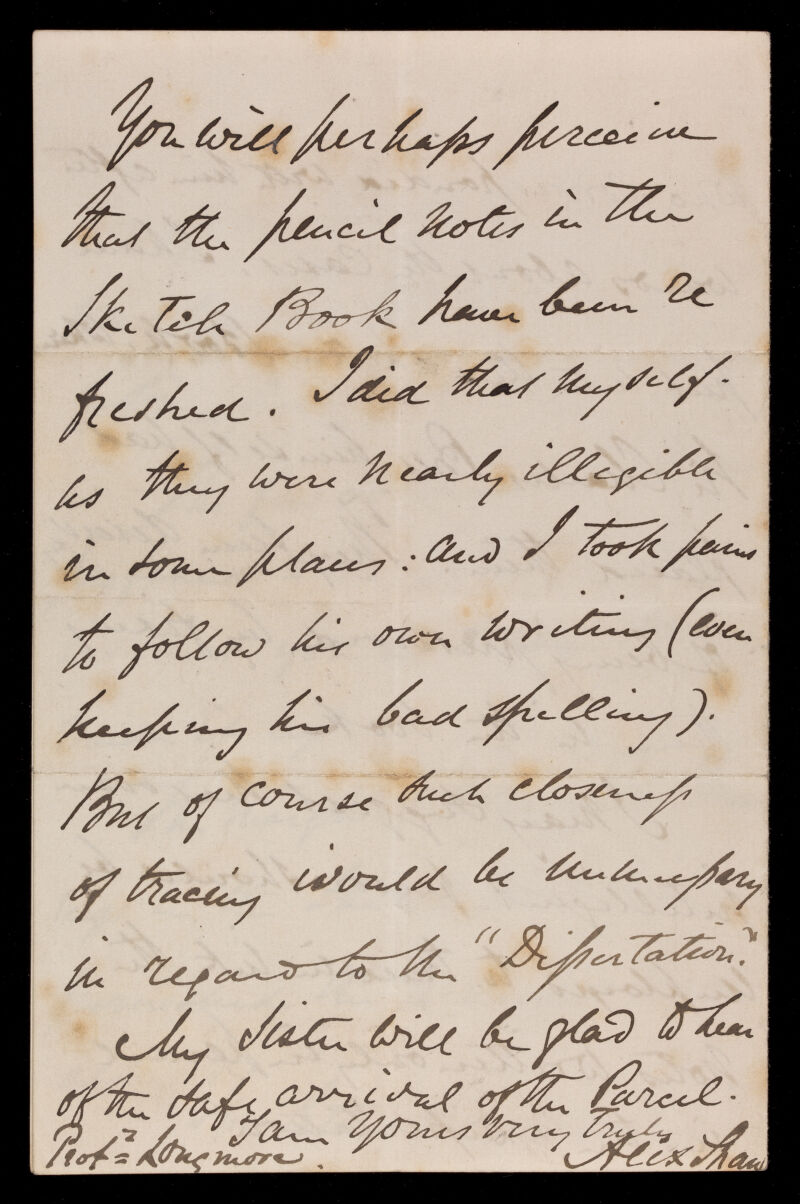 You will perhaps perceive
that the pencil notes in the
Sketch Book have been re
freshed. I did that myself.
as they were nearly illegible
in some places: and I took pains
to follow his own writing (even
keeping his bad spelling).
But of course such closeness
of tracing would be unnecessary
in regard to the "Dissertation."
My Sister will be glad to hear
of the safe arrival of the Parcel.
I am Yours very truly
Profr Longmore. Alex Shaw